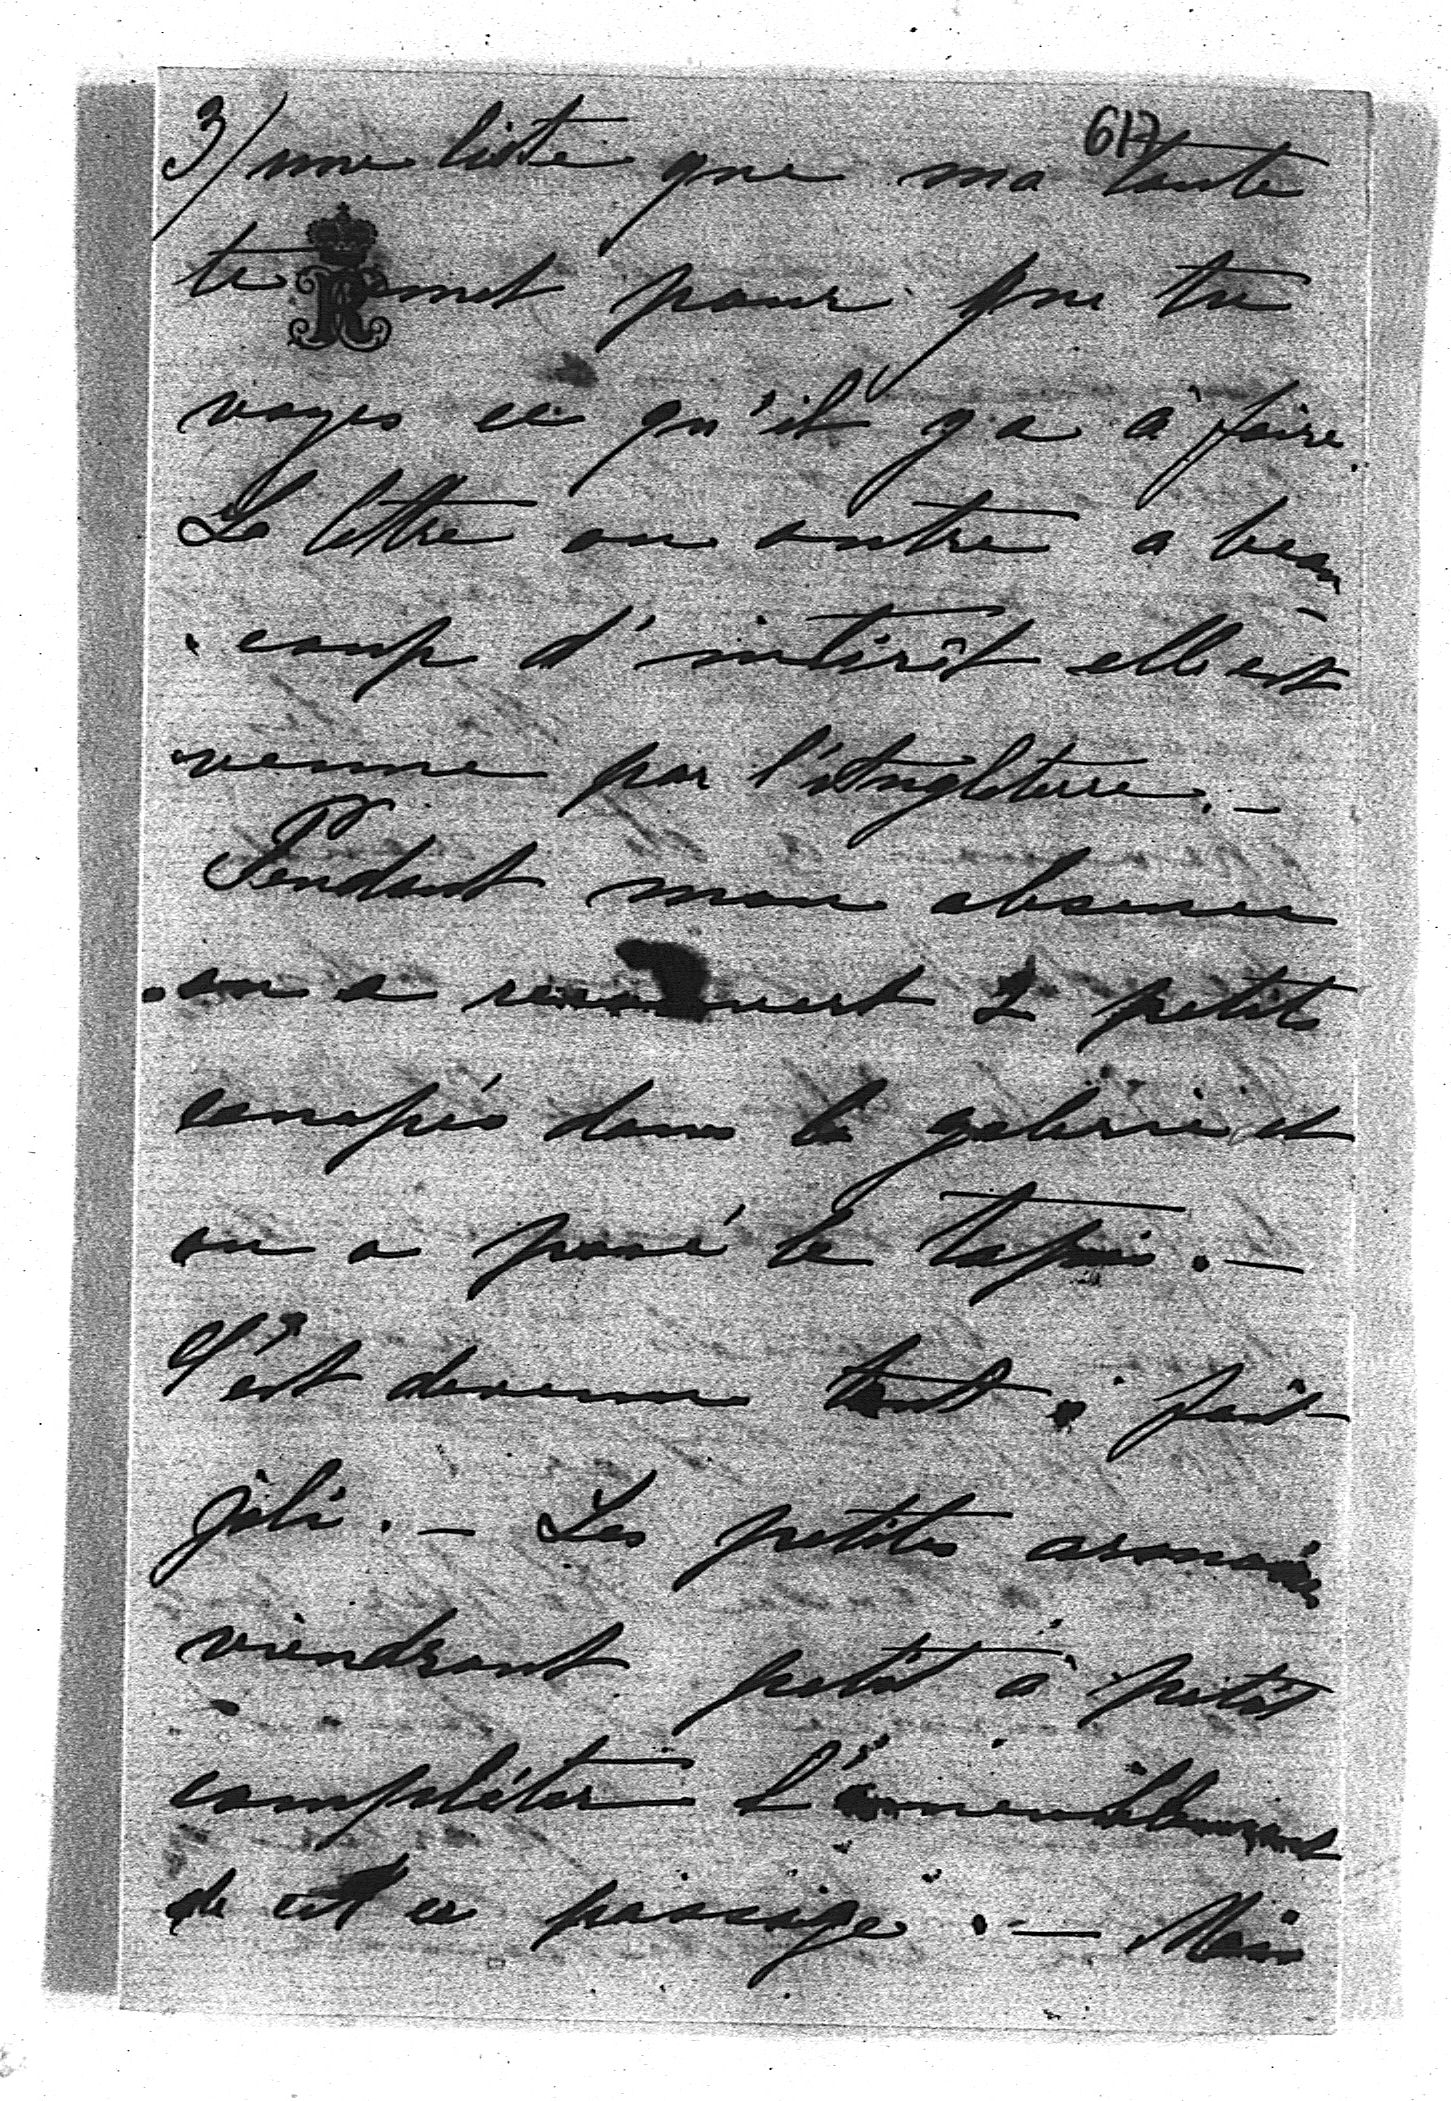 617
3/ une liste que ma tante
te remet pour que tu
voyes ce qu'il y a à faire.
La lettre en outre a beau
coup d'intérêt elle est
venue par l'Angleterre. —
Pendant mon absence
on a recouvert 2 petits
canapés dans la galerie et
on a posé le tapis. —
C'est devenu tout à fait
joli. — Les petites armoires
viendront petit à petit
compléter l'ameublement
de ce passage. — Mais